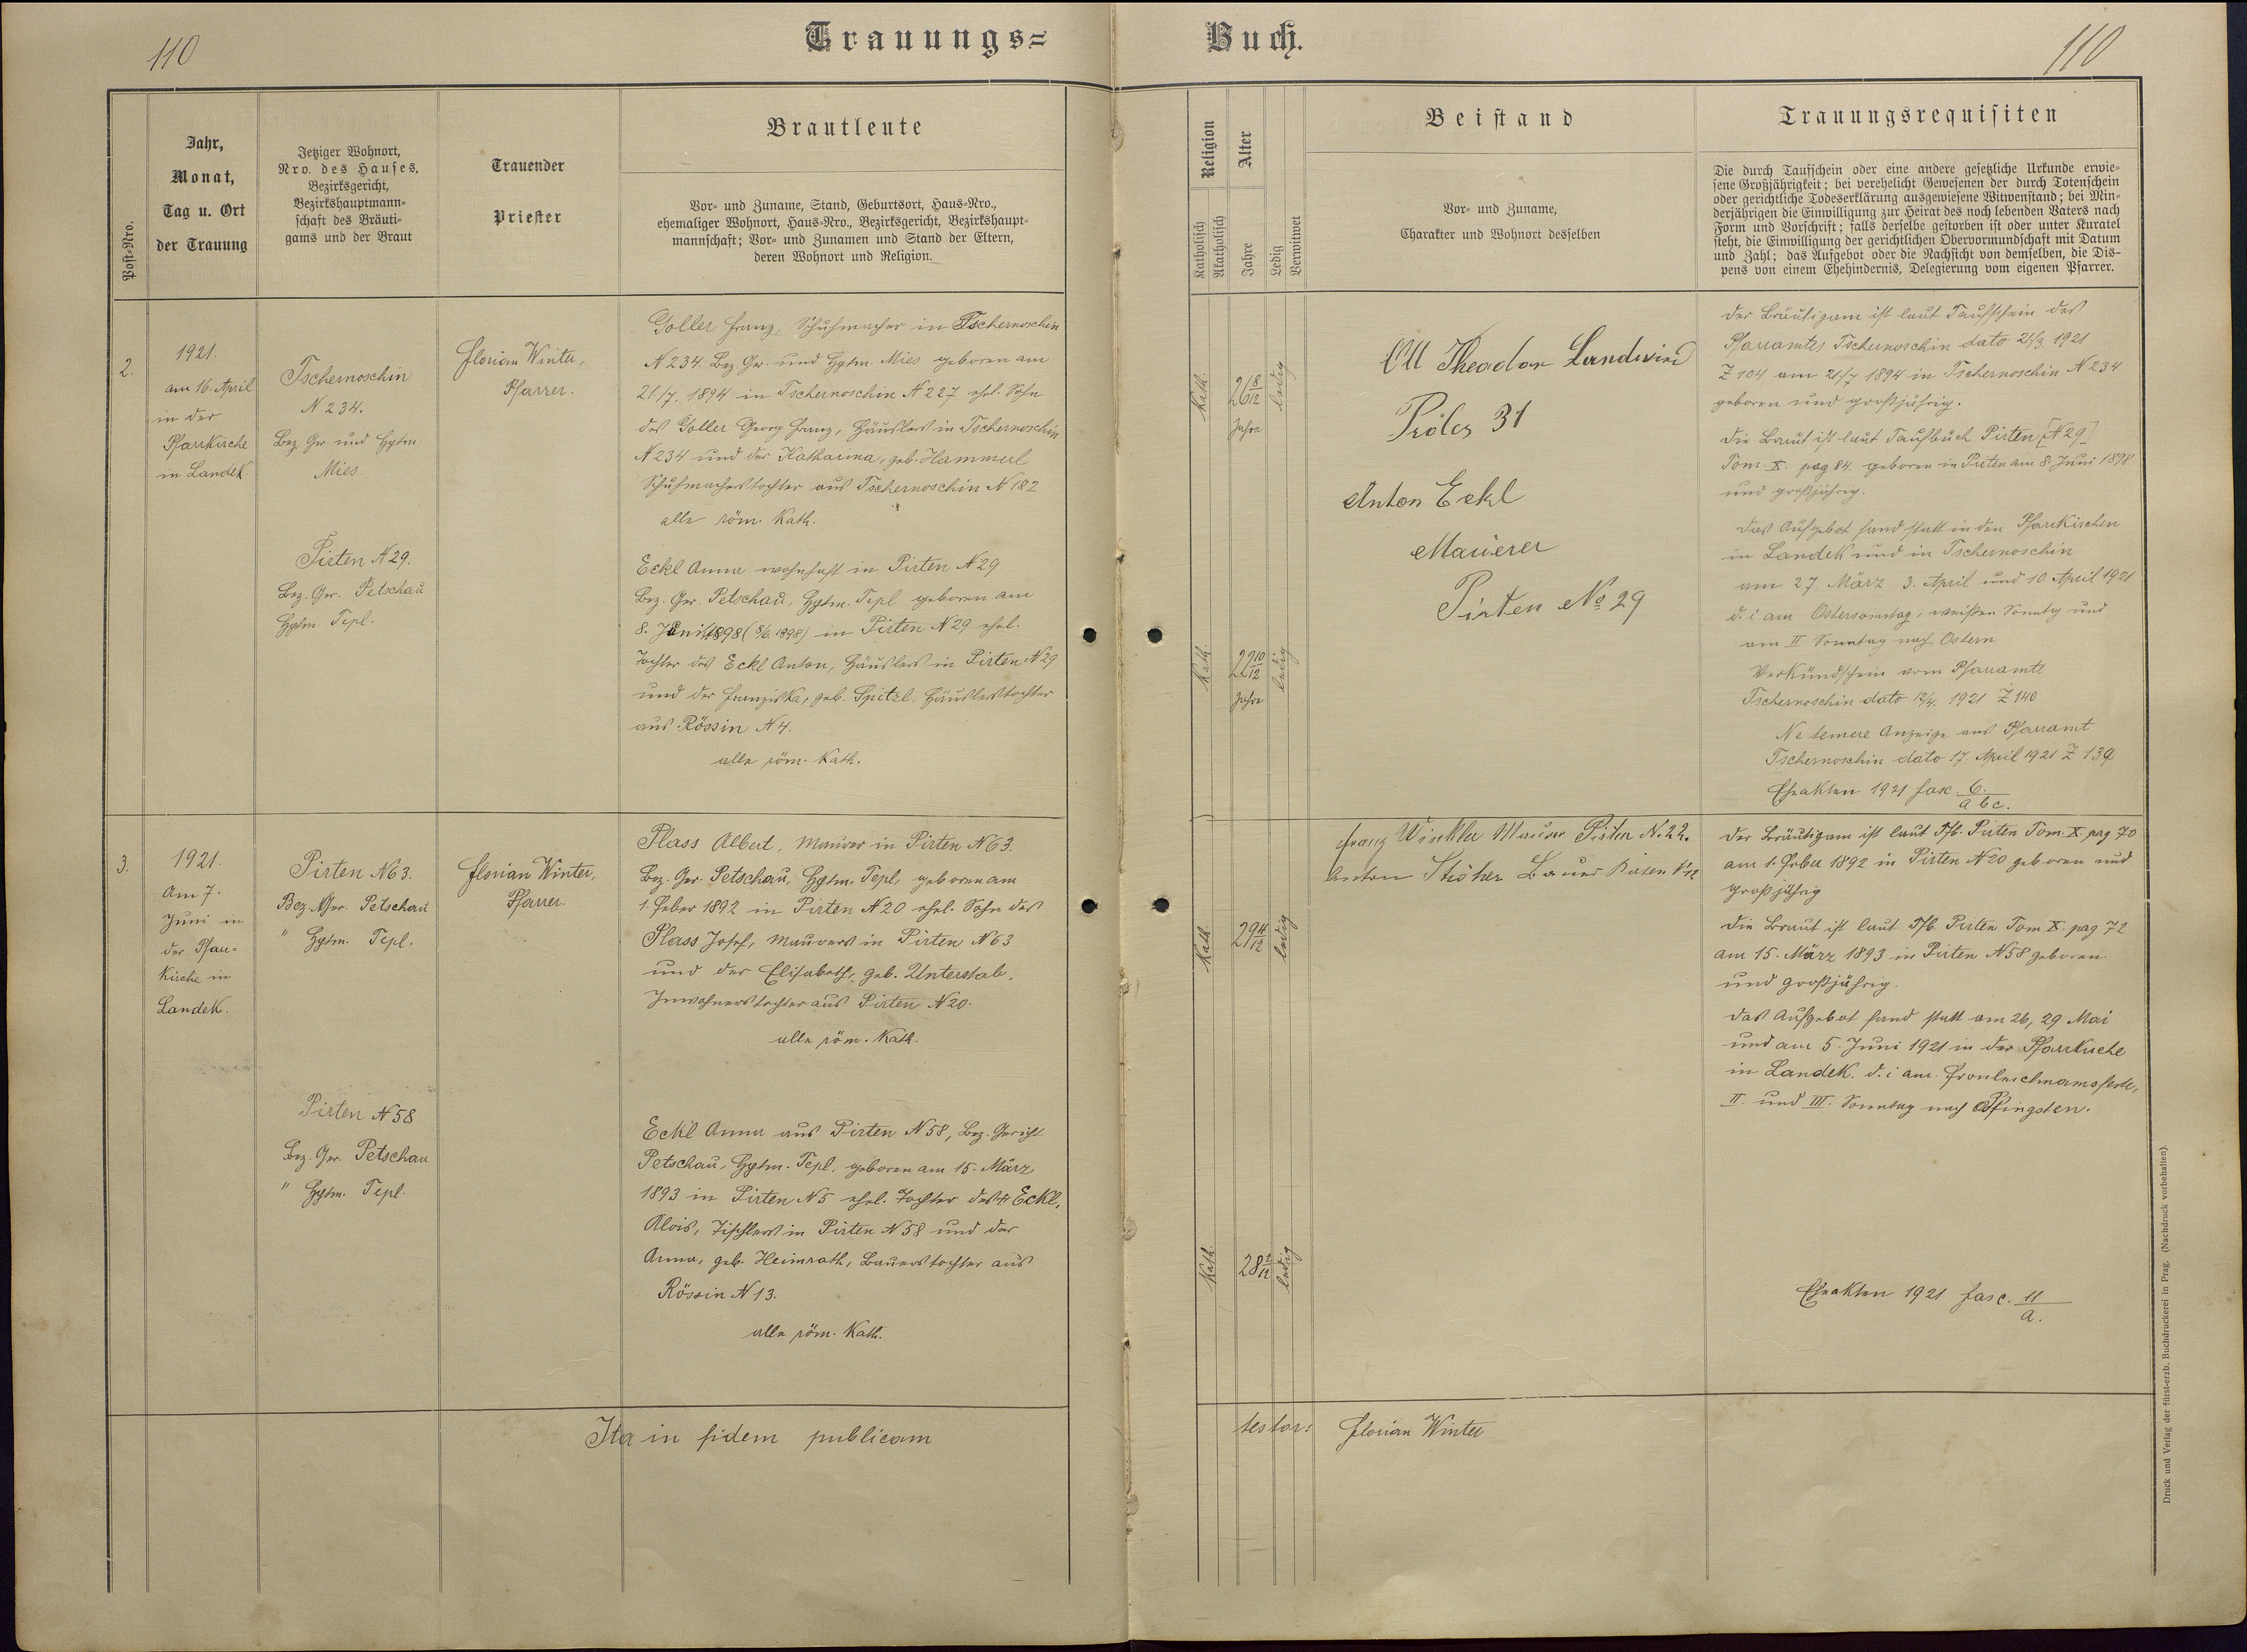 110
Trauungs=
Buch.
110
Post-Nro.
Jahr,
Monat,
Tag u. Ort
der Trauung
Jetziger Wohnort,
Nro. des Hauses,
Bezirksgericht,
Bezirkshauptmann-
schaft des Bräuti-
gams und der Braut
Trauender
Priester
Brautleute
Vor- und Zuname, Stand, Geburtsort, Haus-Nro.,
ehemaliger Wohnort, Haus-Nro., Bezirksgericht, Bezirkshaupt-
mannschaft; Vor- und Zunamen und Stand der Eltern,
deren Wohnort und Religion.
Religion
Katholisch
Akatholisch
Alter
Jahre
Ledig
Verwitwet
Beistand
Vor- und Zuname,
Charakter und Wohnort desselben
Trauungsrequisiten
Die durch Taufschein oder eine andere gesetzliche Urkunde erwie-
sene Großjährigkeit; bei verehelicht Gewesenen der durch Totenschein
oder gerichtliche Todeserklärung ausgewiesene Witwenstand; bei Min-
derjährigen die Einwilligung zur Heirat des noch lebenden Vaters nach
Form und Vorschrift; falls derselbe gestorben ist oder unter Kuratel
steht, die Einwilligung der gerichtlichen Obervormundschaft mit Datum
und Zahl; das Aufgebot oder die Nachsicht von demselben, die Dis-
pens von einem Ehehindernis, Delegierung vom eigenen Pfarrer.
2.
1921.
am 16. April
in der
Pfarrkirche
in Landek.
Tschernoschin
N 234.
Bez. Ger und Hptm.
Mies.
Pirten N 29.
Bez. Ger. Petschau
Hptm. Tepl.
Florian Winter,
Pfarrer.
Goller Franz, Schuhmacher in Tschernoschin
N 234. Bez. Ger. und Hptm. Mies geboren am
21/7. 1894 in Tschernoschin N 227 ehel. Sohn
des Goller Georg Franz, Häuslers in Tschernoschin
N 234 und der Katharina, geb. Hammerl
Schuhmacherstochter aus Tschernoschin N 182
alle röm. Kath.
Eckl Anna wohnhaft in Pirten N 29
Bez. Ger. Petschau, Hptm. Tepl geboren am
8. Juni 1898 (8/6 1898) in Pirten N 29 ehel.
Tochter des Eckl Anton, Häuslers in Pirten N 29
und der Franziska, geb. Spitzl, Häuslerstochter
aus Rössin N 4.
alle röm. Kath.
Kath.
26 8/12
Jahre
ledig
Kath.
22 10/12
Jahre
ledig
Theodor
31
Anton Eckl
Mauerer
Pirten No 29
Der Bräutigam ist laut Taufschein des
Pfarramtes Tschernoschin dato 21/3. 1921
Z 104 am 21/7 1894 in Tschernoschin N 234
geboren und großjährig.
Die Braut ist laut Taufbuch Pirten [N 29]
Tom. X. pag 84. geboren in Pirten am 8. Juni 1898
und großjährig.
Das Aufgebot fand statt in den Pfarrkirchen
in Landek und in Tschernoschin
am 27. März 3. April und 10. April 1921
d. i am Ostersonntag, weißen Sonntag und
am II Sonntag nach Ostern
Verkündschein vom Pfarramte
Tschernoschin dato 12/4. 1921 Z 140
Ne temere Anzeige ans Pfarramt
Tschernoschin dato 17 April 1921 Z 139
Eheakten 1921 fasc. 6./a b c.
3.
1921.
Am 7.
Juni in
der Pfarr-
kirche in
Landek.
Pirten N 63.
Bez. Ger. Petschau
" Hptm. Tepl.
Pirten N 58
Bez. Ger. Petschau
" Hptm. Tepl.
Florian Winter,
Pfarrer.
Plass Albert, Maurer in Pirten N 63.
Bez. Ger. Petschau, Hptm. Tepl, geboren am
1. Feber 1892 in Pirten N 20 ehel. Sohn des
Plass Josef, Maurers in Pirten N 63
und der Elisabeth, geb. Unterstab,
Inwohnerstochter aus Pirten N 20.
alle röm. Kath.
Eckl Anna aus Pirten N 58, Bez. Gericht
Petschau, Hptm. Tepl. geboren am 15. März
1893 in Pirten N 5 ehel. Tochter des † Eckl,
Alois, Tischlers in Pirten N 58 und der
Anna, geb. Heimrath, Bauerstochter aus
Rössin N 13.
alle röm. Kath.
Kath.
29 4/12
ledig
Kath.
28 2/12
ledig
Franz Winkler Maurer Pirten N. 22.
Anton Ströher Bauer Pirten N 12
Der Bräutigam ist laut Tfb. Pirten Tom. X. pag 70
am 1. Feber 1892 in Pirten N 20 geboren und
großjährig
Die Braut ist laut Tfb. Pirten Tom X. pag 72
am 15. März 1893 in Pirten N 58 geboren
und großjährig.
Das Aufgebot fand statt am 26, 29 Mai
und am 5. Juni 1921 in der Pfarrkirche
in Landek. d. i am Fronleichnamsfeste,
II. und III. Sonntag nach Pfingsten.
Eheakten 1921 fasc. 11/a.
Ita in fidem publicam
testor:
Florian Winter
Druck und Verlag der fürst-erzb. Buchdruckerei in Prag. (Nachdruck vorbehalten).